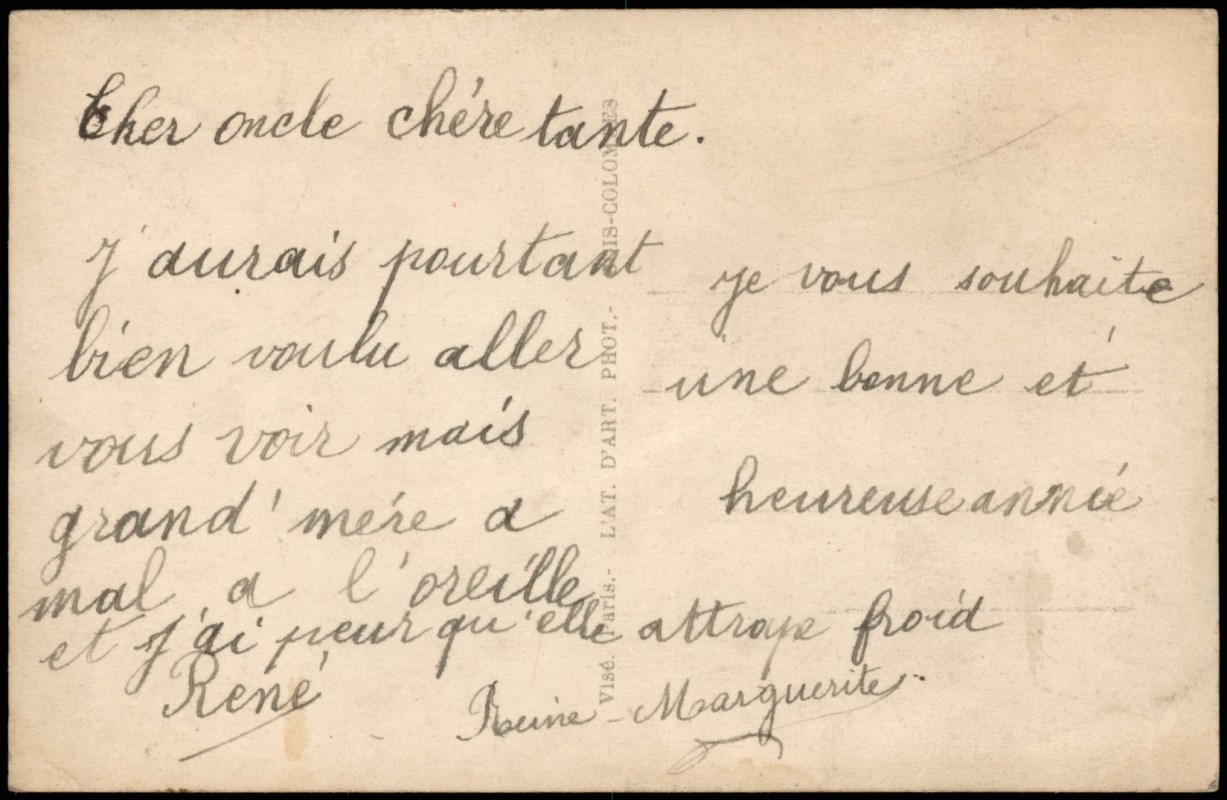 Cher oncle chére tante.
J'aurais pourtant
bien voulu aller
vous voir mais
grand' mére a
mal a l'oreille
et j'ai peur qu'elle attrape froid
René
je vous souhaite
une bonne et
heureuse année
Reine-Marguerite
Visé. Paris.- L'AT. D'ART. PHOT.- BOIS-COLOMBES